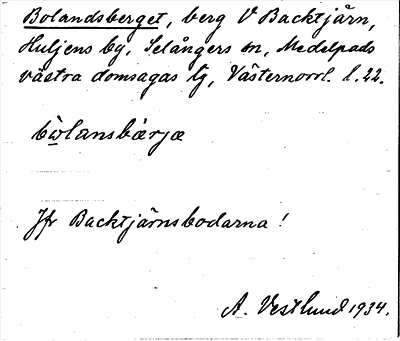 Bolandsberget, berg V Backtjärn,
Huljens by, Selångers sn, Medelpads
västra domsagas tg, Västernorrl. l. 22.
bòlansbærjæ
Jfr Backtjärnsbodarna!
A. Vestlund 1934.